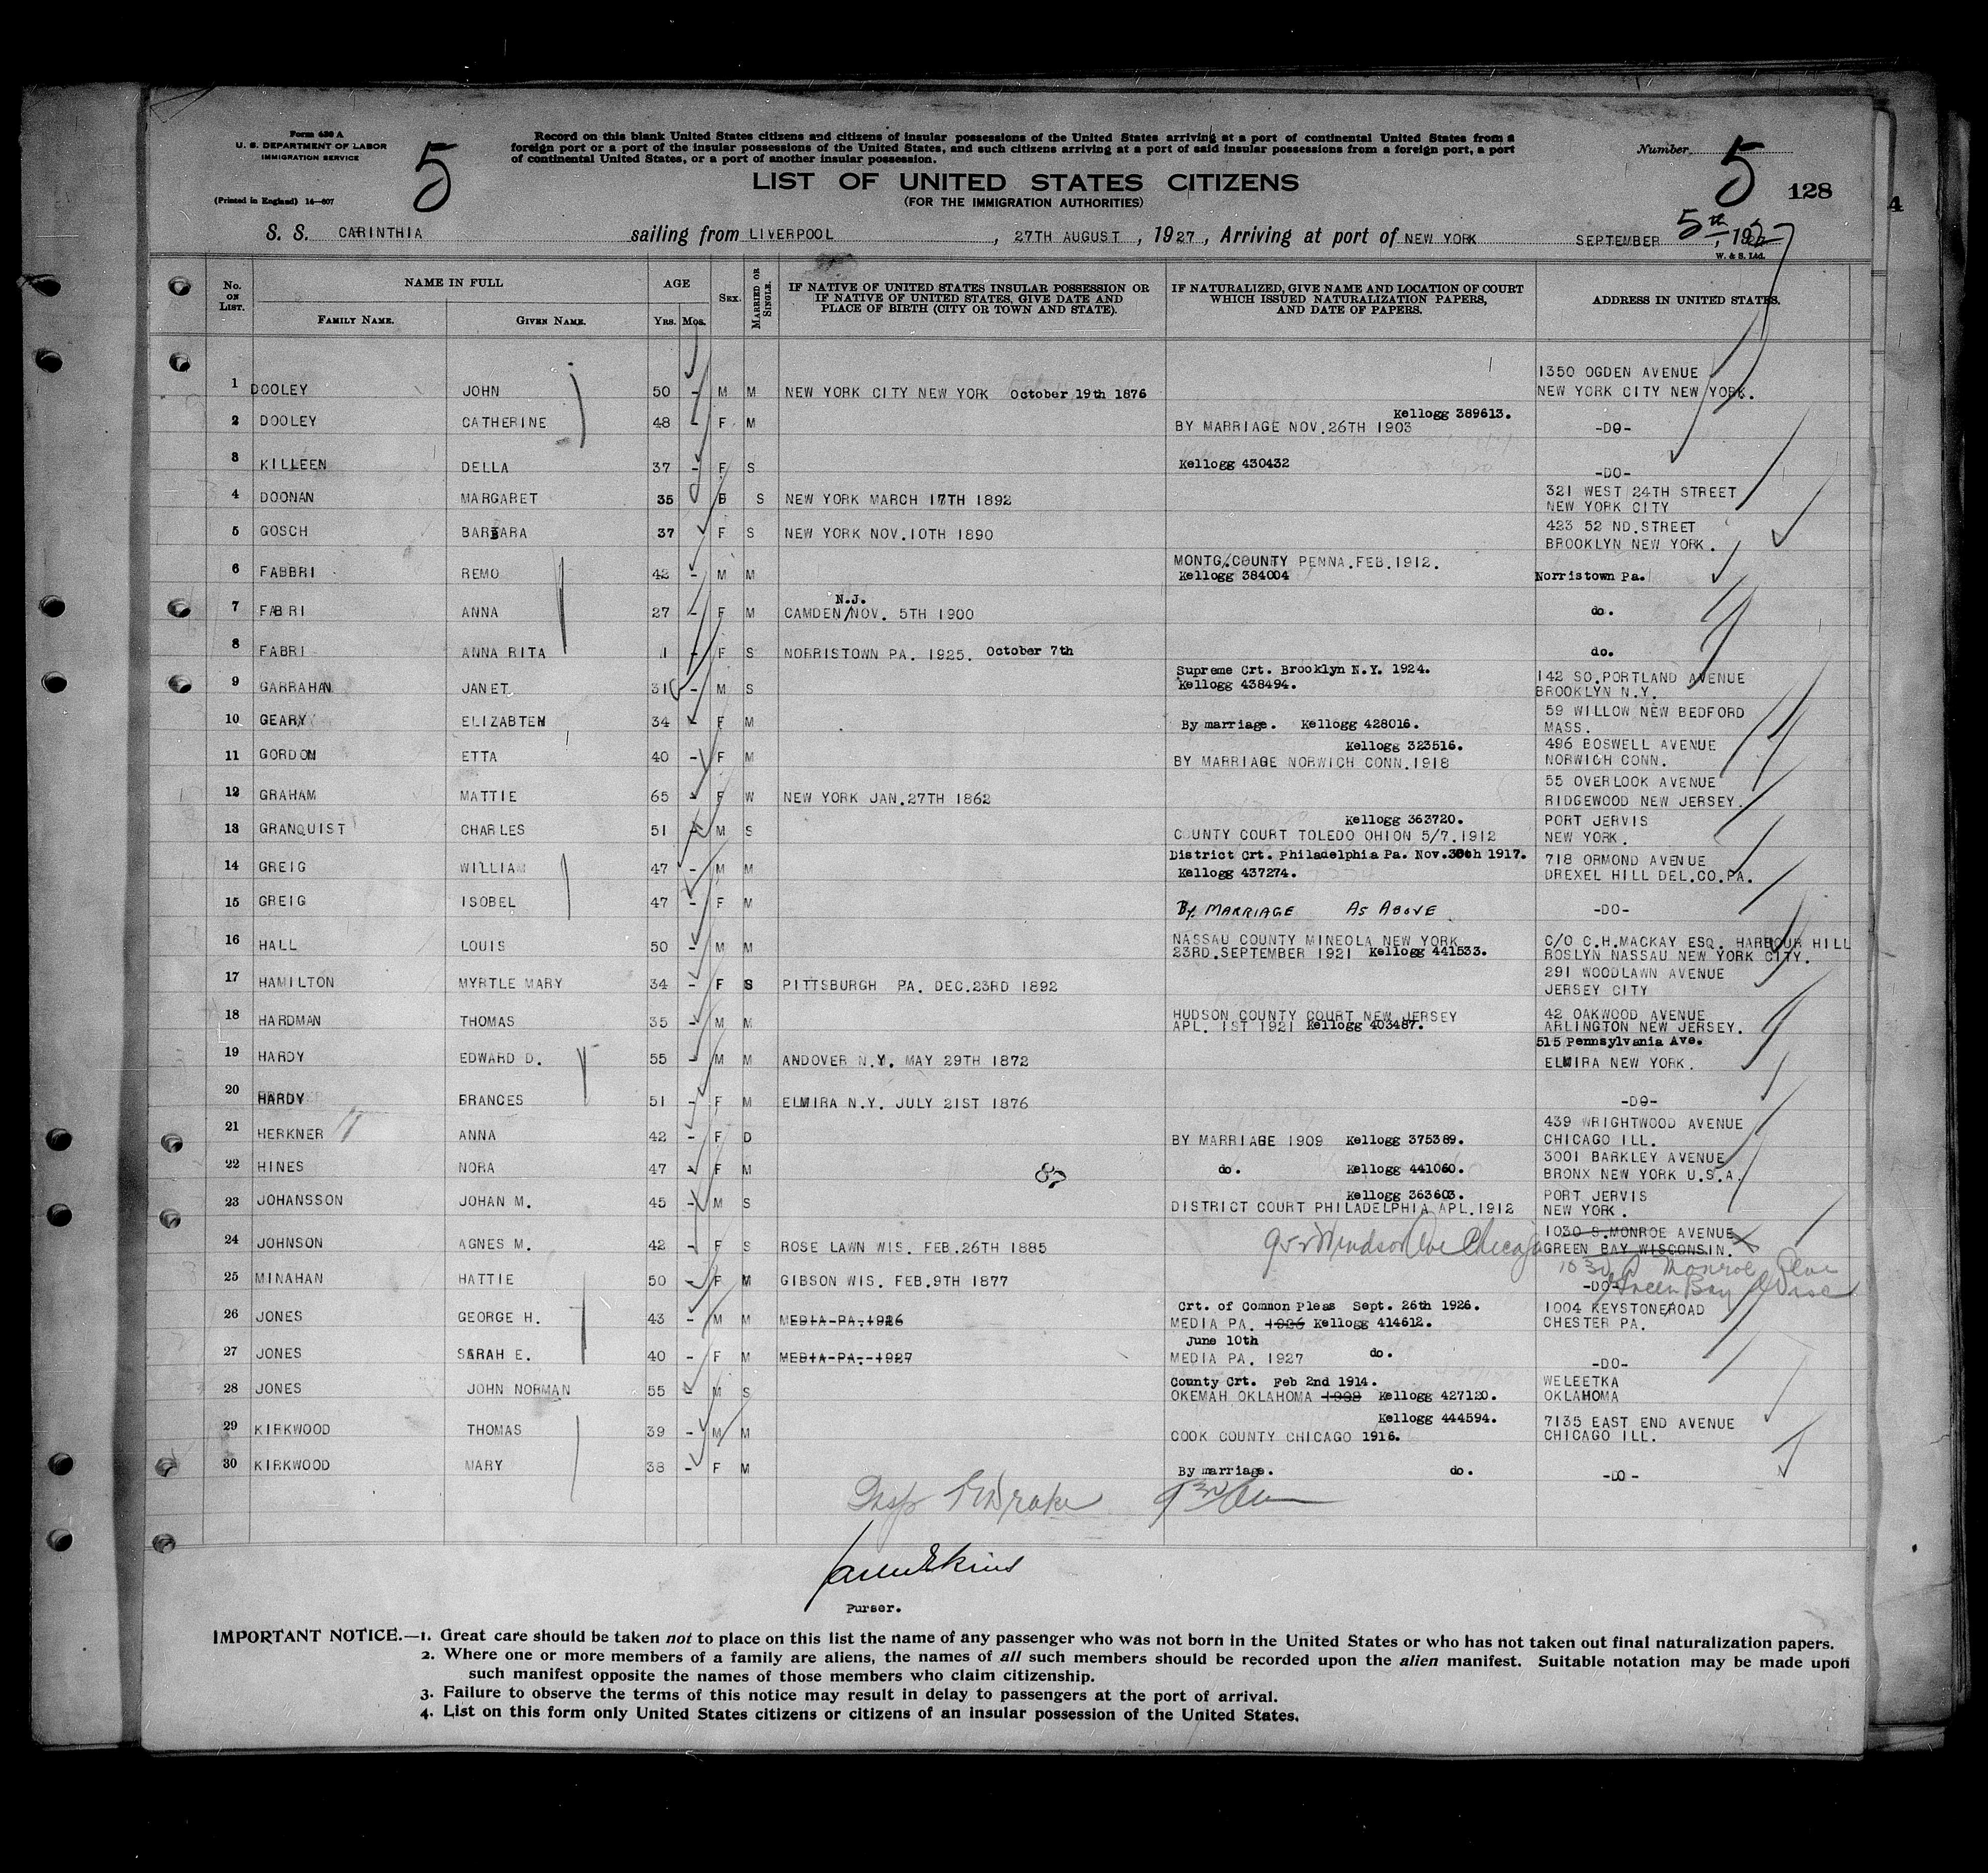 Form 630 A
U. S. DEPARTMENT OF LABOR
IMMIGRATION SERVICE
(Printed in England) 14—807
5
Record on this blank United States citizens and citizens of insular possessions of the United States arriving at a port of continental United States from a
foreign port or a port of the insular possessions of the United States, and such citizens arriving at a port of said insular possessions from a foreign port, a port
of continental United States, or a port of another insular possession.
Number 5
128
4
LIST OF UNITED STATES CITIZENS
(FOR THE IMMIGRATION AUTHORITIES)
S. S. CARINTHIA sailing from LIVERPOOL, 27TH AUGUST, 1927, Arriving at port of NEW YORK SEPTEMBER 5th, 1927
W. & S. Ltd.
No. ON LIST. NAME IN FULL FAMILY NAME. GIVEN NAME. AGE YRS. MOS. SEX. MARRIED OR SINGLE. IF NATIVE OF UNITED STATES INSULAR POSSESSION OR IF NATIVE OF UNITED STATES, GIVE DATE AND PLACE OF BIRTH (CITY OR TOWN AND STATE). IF NATURALIZED, GIVE NAME AND LOCATION OF COURT WHICH ISSUED NATURALIZATION PAPERS, AND DATE OF PAPERS. ADDRESS IN UNITED STATES.
1 DOOLEY JOHN 50 - M M NEW YORK CITY NEW YORK October 19th 1876 1350 OGDEN AVENUE
NEW YORK CITY NEW YORK.
2 DOOLEY CATHERINE 48 - F M Kellogg 389613.
BY MARRIAGE NOV.26TH 1903 -DO-
3 KILLEEN DELLA 37 - F S Kellogg 430432 -DO-
4 DOONAN MARGARET 35 S NEW YORK MARCH 17TH 1892 321 WEST 24TH STREET
NEW YORK CITY
5 GOSCH BARBARA 37 F S NEW YORK NOV.10TH 1890 423 52 ND.STREET
BROOKLYN NEW YORK.
6 FABBRI REMO 42 - M M MONTG.COUNTY PENNA.FEB.1912.
Kellogg 384004 Norristown Pa.
7 FABRI ANNA 27 - F M N.J.
CAMDEN/NOV. 5TH 1900 do.
8 FABRI ANNA RITA 1 - F S NORRISTOWN PA. 1925. October 7th do.
9 GARRAHAN JANET 31 - M S Supreme Crt. Brooklyn N.Y. 1924.
Kellogg 438494. 142 SO.PORTLAND AVENUE
BROOKLYN N.Y.
10 GEARY ELIZABTEH 34 - F M By marriage. Kellogg 428016. 59 WILLOW NEW BEDFORD
MASS.
11 GORDON ETTA 40 - F M Kellogg 323516.
BY MARRIAGE NORWICH CONN.1918 496 BOSWELL AVENUE
NORWICH CONN.
12 GRAHAM MATTIE 65 - F W NEW YORK JAN.27TH 1862 55 OVERLOOK AVENUE
RIDGEWOOD NEW JERSEY.
13 GRANQUIST CHARLES 51 - M S Kellogg 363720.
COUNTY COURT TOLEDO OHION 5/7.1912 PORT JERVIS
NEW YORK.
14 GREIG WILLIAM 47 - M M District Crt. Philadelphia Pa. Nov.30th 1917.
Kellogg 437274. 718 ORMOND AVENUE
DREXEL HILL DEL.CO.PA.
15 GREIG ISOBEL 47 - F M By MARRIAGE AS ABOVE -DO-
16 HALL LOUIS 50 - M M NASSAU COUNTY MINEOLA NEW YORK
23RD.SEPTEMBER 1921 Kellogg 441533. C/O C.H.MACKAY ESQ. HARBOUR HILL
ROSLYN NASSAU NEW YORK CITY.
17 HAMILTON MYRTLE MARY 34 - F S PITTSBURGH PA. DEC.23RD 1892 291 WOODLAWN AVENUE
JERSEY CITY
18 HARDMAN THOMAS 35 - M M HUDSON COUNTY COURT NEW JERSEY
APL. 1ST 1921 Kellogg 403487. 42 OAKWOOD AVENUE
ARLINGTON NEW JERSEY.
19 HARDY EDWARD D. 55 - M M ANDOVER N.Y. MAY 29TH 1872 515 Pennsylvania Ave.
ELMIRA NEW YORK.
20 HARDY FRANCES 51 - F M ELMIRA N.Y. JULY 21ST 1876 -DO-
21 HERKNER ANNA 42 - F D BY MARRIAGE 1909 Kellogg 375389. 439 WRIGHTWOOD AVENUE
CHICAGO ILL.
22 HINES NORA 47 - F M do. Kellogg 441060. 3001 BARKLEY AVENUE
BRONX NEW YORK U.S.A.
23 JOHANSSON JOHAN M. 45 - M S Kellogg 363603.
DISTRICT COURT PHILADELPHIA APL.1912 PORT JERVIS
NEW YORK.
24 JOHNSON AGNES M. 42 - F S ROSE LAWN WIS. FEB.26TH 1885 Windsor Ave Chicago 1030 S.MONROE AVENUE
GREEN BAY WISCONSIN.
25 MINAHAN HATTIE 50 - F M GIBSON WIS. FEB.9TH 1877 1030 S Monroe Ave
-DO- Green Bay Wisc
26 JONES GEORGE H. 43 - M M MEDIA-PA-1926 Crt. of Common Pleas Sept. 26th 1926.
MEDIA PA. 1926 Kellogg 414612. 1004 KEYSTONEROAD
CHESTER PA.
27 JONES SARAH E. 40 - F M MEDIA-PA.-1927 June 10th
MEDIA PA. 1927 do. -DO-
28 JONES JOHN NORMAN 55 - M S County Crt. Feb 2nd 1914.
OKEMAH OKLAHOMA 1908 Kellogg 427120. WELEETKA
OKLAHOMA
29 KIRKWOOD THOMAS 39 - M M Kellogg 444594.
COOK COUNTY CHICAGO 1916. 7135 EAST END AVENUE
CHICAGO ILL.
30 KIRKWOOD MARY 38 - F M By marriage. do. -DO-
Insp Drake
Purser.
IMPORTANT NOTICE.—1. Great care should be taken not to place on this list the name of any passenger who was not born in the United States or who has not taken out final naturalization papers.
2. Where one or more members of a family are aliens, the names of all such members should be recorded upon the alien manifest. Suitable notation may be made upon
such manifest opposite the names of those members who claim citizenship.
3. Failure to observe the terms of this notice may result in delay to passengers at the port of arrival.
4. List on this form only United States citizens or citizens of an insular possession of the United States.